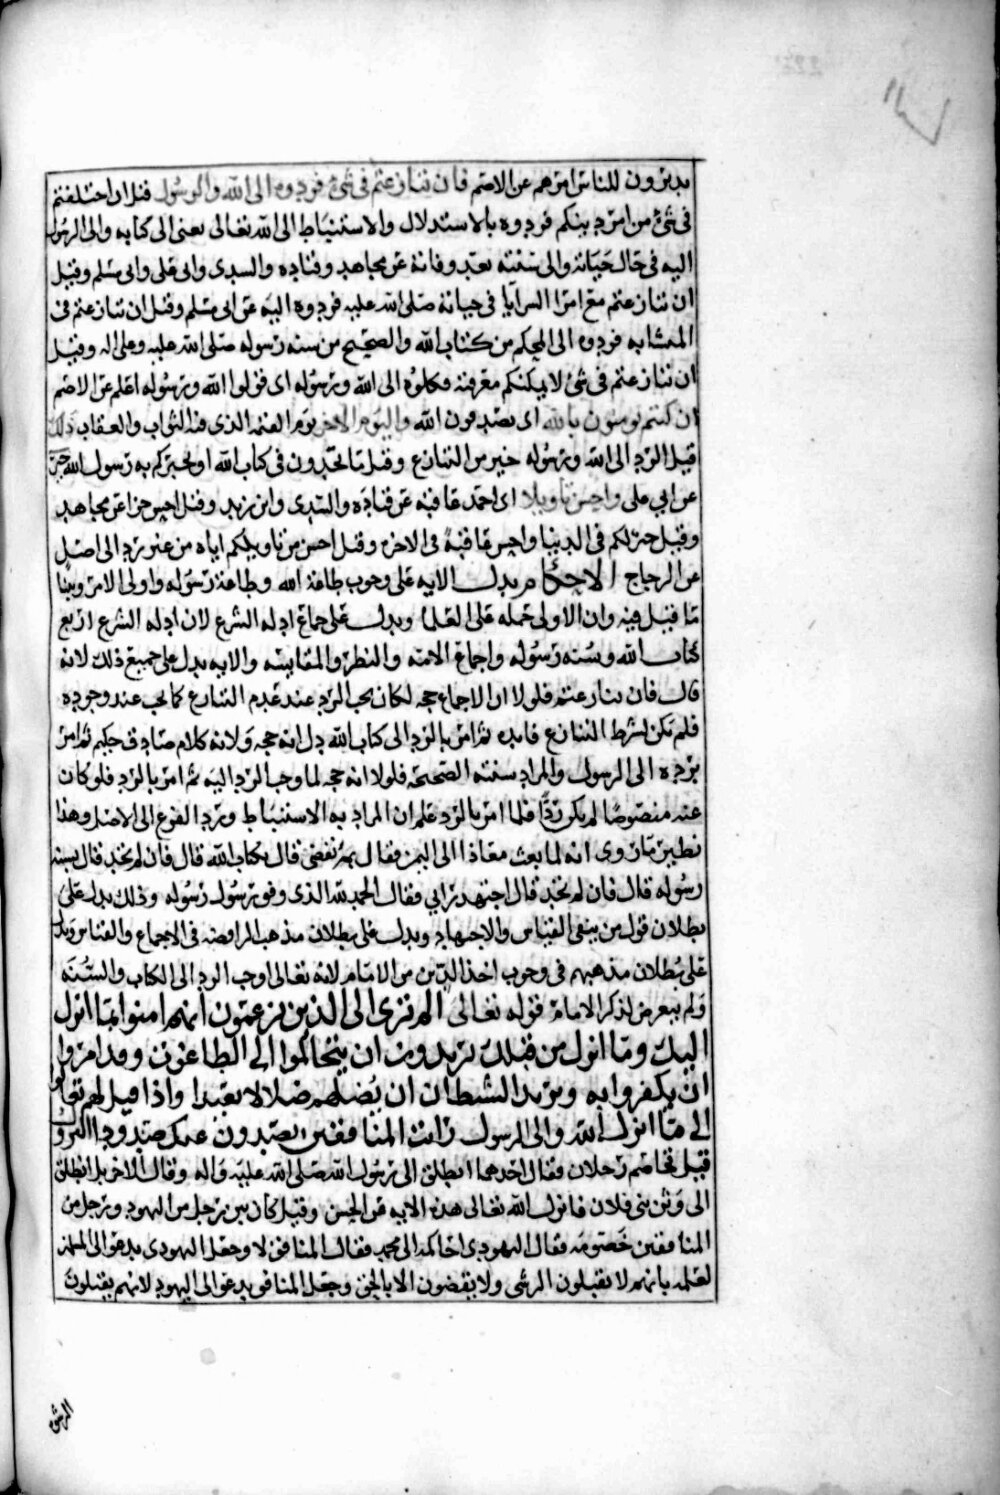 يدبرون للناس امرهم عن الاصم فان تنازعتم فى شئ فردوه الى الله والرسول قيل ان اختلفتم
فى شئ من امر دينكم فردوه بالاستدلال والاستنباط الى الله تعالى يعنى الى كتابه والى الرسول
اليه فى حال حياته والى سنته بعد وفاته عن مجاهد وقتاده والسدى وابى على وابى مسلم وقيل
ان تنازعتم مع امرا السرايا فى حياته صلى الله عليه فردوه اليه عن ابى مسلم وقيل ان تنازعتم فى
المتشابه فردوه الى المحكم من كتاب الله والصحيح من سنه رسوله صلى الله عليه وعلى اله وقيل
ان تنازعتم فى شئ لا يمكنكم معرفته فكلوه الى الله ورسوله اى قولوا الله ورسوله اعلم عن الاصم
ان كنتم تومنون بالله اى تصدقون الله واليوم الاخر يوم القيمه الذى فيه الثواب والعقاب ذلك
قيل الرد الى الله ورسوله خير من التنازع وقيل ما تجدون فى كتاب الله او يخبركم به رسول الله خير
عن ابي على واحسن تاويلا اى احمد عاقبه عن قتاده والسدى وابن زيد وقيل احسن جزا عن مجاهد
وقيل خير لكم فى الدنيا واحسن عاقبة فى الاخره وقيل احسن من تاويلكم اياه من غير رد الى اصل
عن الزجاج الاحكام يدل الايه على وجوب طاعة الله وطاعة رسوله واولى الامر وبينا
ما قيل فيه وان الاولى حمله على العلما ويدل على جماع ادله الشرع لان ادله الشرع اربع
كتاب الله وسنه رسوله واجماع الامه والنظر والمقايسه والايه يدل على جميع ذلك لانه
قال فان تنازعتم فلولا ان الاجماع حجه لكان يجب الرد عند عدم التنازع كما يجب عند وجوده
فلم تكن لشرط التنازع فايده ثم امر بالرد الى كتاب الله دل انه حجه ولانه كلام صادق حكيم ثم امر
برده الى الرسول والمراد سنته الصحيحه فلولا انه حجه لما وجب الرد اليه ثم امر بالرد فلو كان
عنه منصوصا لم يكن ردا فلما امر بالرد علم ان المراد به الاستنباط ورد الفرع الى الاصل وهذا
نظير ما روى انه لما بعث معاذا الى اليمن فقال بم تقضى قال بكتاب الله قال فان لم تجد قال بسنه
رسوله قال فان لم تجد قال اجتهد رايي فقال الحمد لله الذى وفق رسول رسوله وذلك يدل على
بطلان قول من ينفى القياس والاجتهاد ويدل على بطلان مذهب الرافضه فى الاجماع والقياس ويدل
على بطلان مذهبهم فى وجوب اخذ الدين من الامام لانه تعالى اوجب الرد الى الكتاب والسنه
ولم يتعرض لذكر الامام قوله تعالى الم تر الى الذين يزعمون انهم امنوا بما انزل
اليك وما انزل من قبلك يريدون ان يتحاكموا الى الطاغوت وقد امروا
ان يكفروا به ويريد الشيطان ان يضلهم ضلالا بعيدا واذا قيل لهم تعالوا
الى ما انزل الله والى الرسول رايت المنافقين يصدون عنك صدودا النزول
قيل تخاصم رجلان فقال احدهما انطلق الى رسول الله صلى الله عليه واله وقال الاخر بل انطلق
الى وثن بنى فلان فانزل الله تعالى هذه الايه عن الحسن وقيل كان بين رجل من اليهود ورجل من
المنافقين خصومه فقال اليهودى احاكمك الى محمد فقال المنافق لا وجعل اليهودى يدعو الى المسلمين
لعلمه بانهم لا يقبلون الرشى ولا يقضون الا بالحق وجعل المنافق يدعو الى اليهود لانهم يقبلون
الرشوه